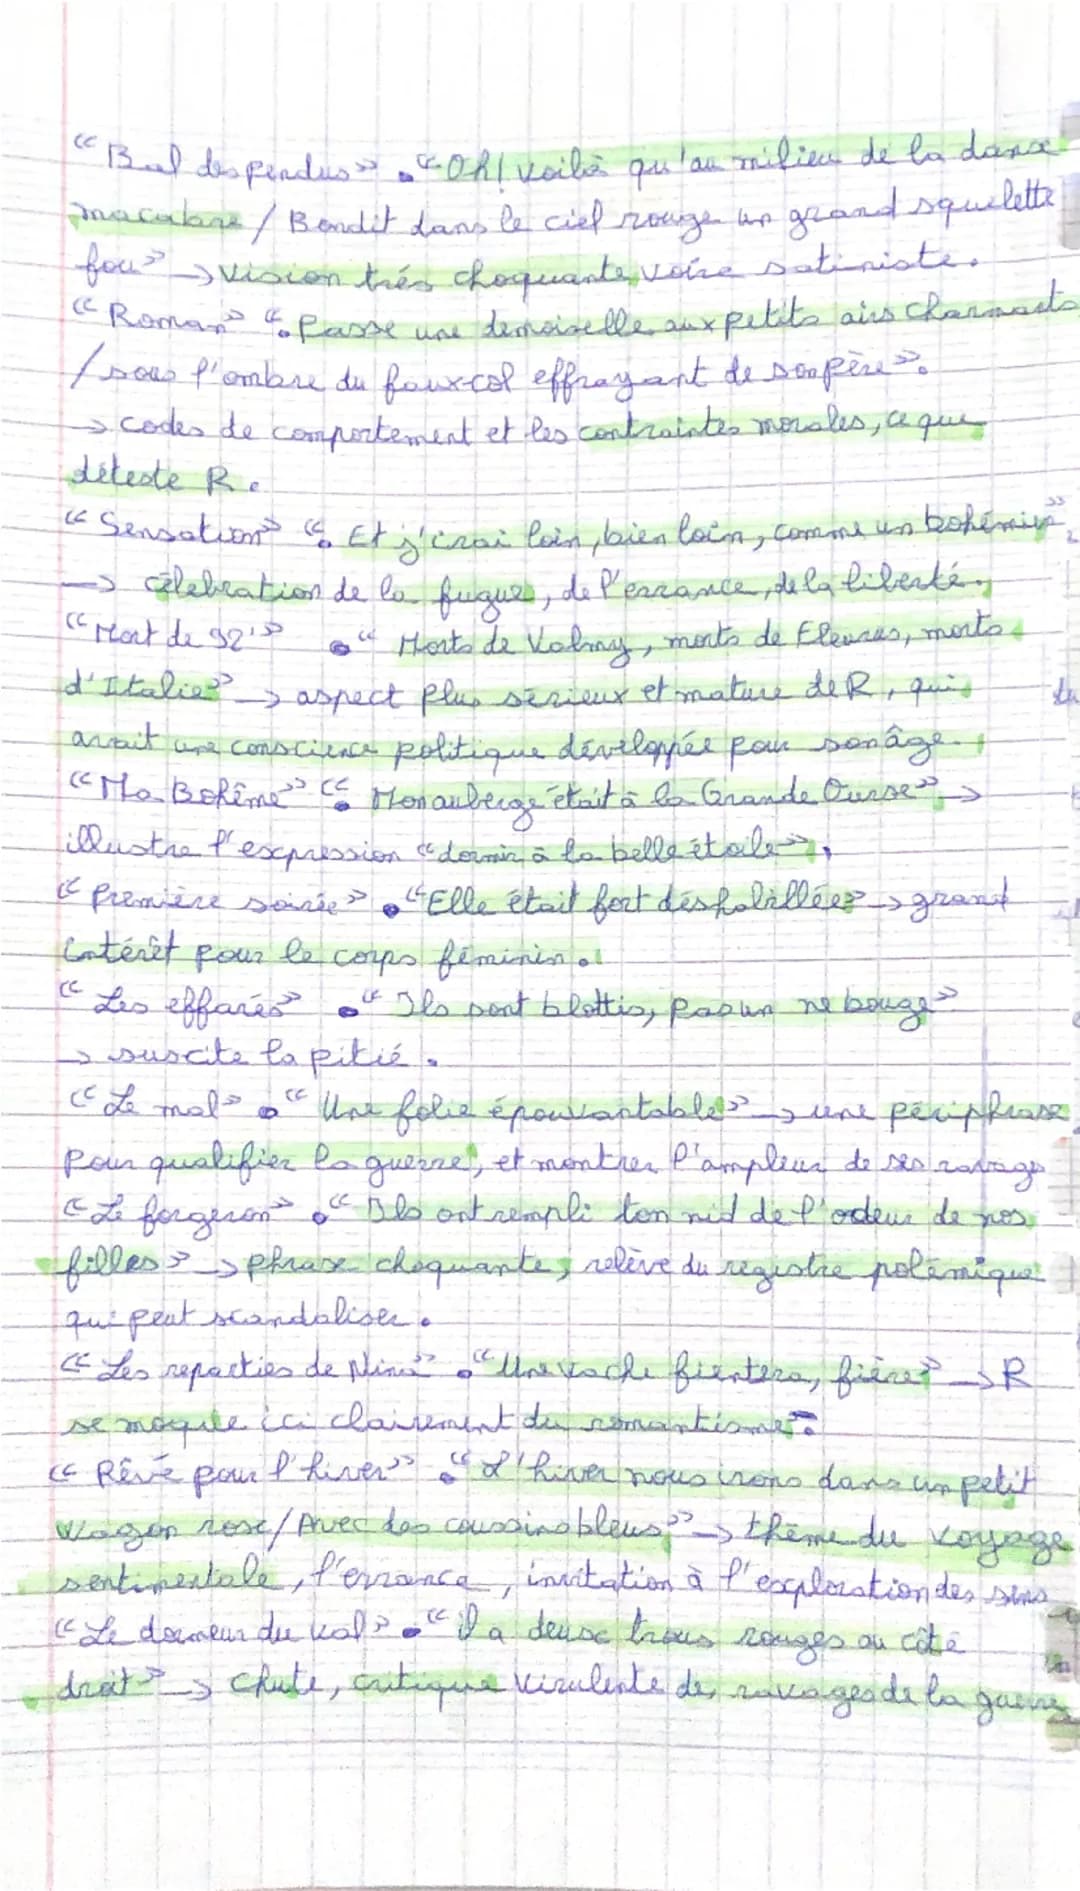 « Bal des pendus » • « Oh! voilà qu'au milieu de la danse
macabre / Bondit dans le ciel rouge un grand squelette
fou » → Vision très choquante, voire sataniste.
« Roman » « • Passe une demoiselle aux petits airs charmants
/ sous l'ombre du faux-col effrayant de son père ».
→ codes de comportement et les contraintes morales, ce que
déteste R.
« Sensation » « • Et j'irai loin, bien loin, comme un bohémien »
→ célebration de la fugue, de l'errance, de la liberté.
« Mort de 92' » • « Morts de Valmy, morts de Fleurus, morts
d'Italie » → aspect plus sérieux et mature de R, qui
avait une conscience politique développée pour son âge.
« Ma Bohême » « • Mon auberge était à la Grande Ourse » →
illustre l'expression « dormir à la belle étoile ».
« Première soirée » • « Elle était fort déshabillée » → grand
intérêt pour le corps féminin.
« Les effarés » • « Ils sont blottis, pas un ne bouge »
→ suscite la pitié.
« Le mal » • « Une folie épouvantable » → une périphrase
pour qualifier la guerre, et montrer l'ampleur de ses ravages
« Le forgeron » • « Ils ont rempli ton nid de l'odeur de nos
filles » → phrase choquante, relève du registre polémique
qui peut scandaliser.
« Les reparties de Nina » • « Une vache fientera, fière » → R
se moque ici clairement du romantisme.
« Rêvé pour l'hiver » • « L'hiver nous irons dans un petit
wagon rose / Avec des coussins bleus » → thème du voyage
sentimentale, l'errance, invitation à l'exploration des sens
« Le dormeur du val » • « il a deux trous rouges au côté
droit » → Chute, critique virulente des ravages de la guerre